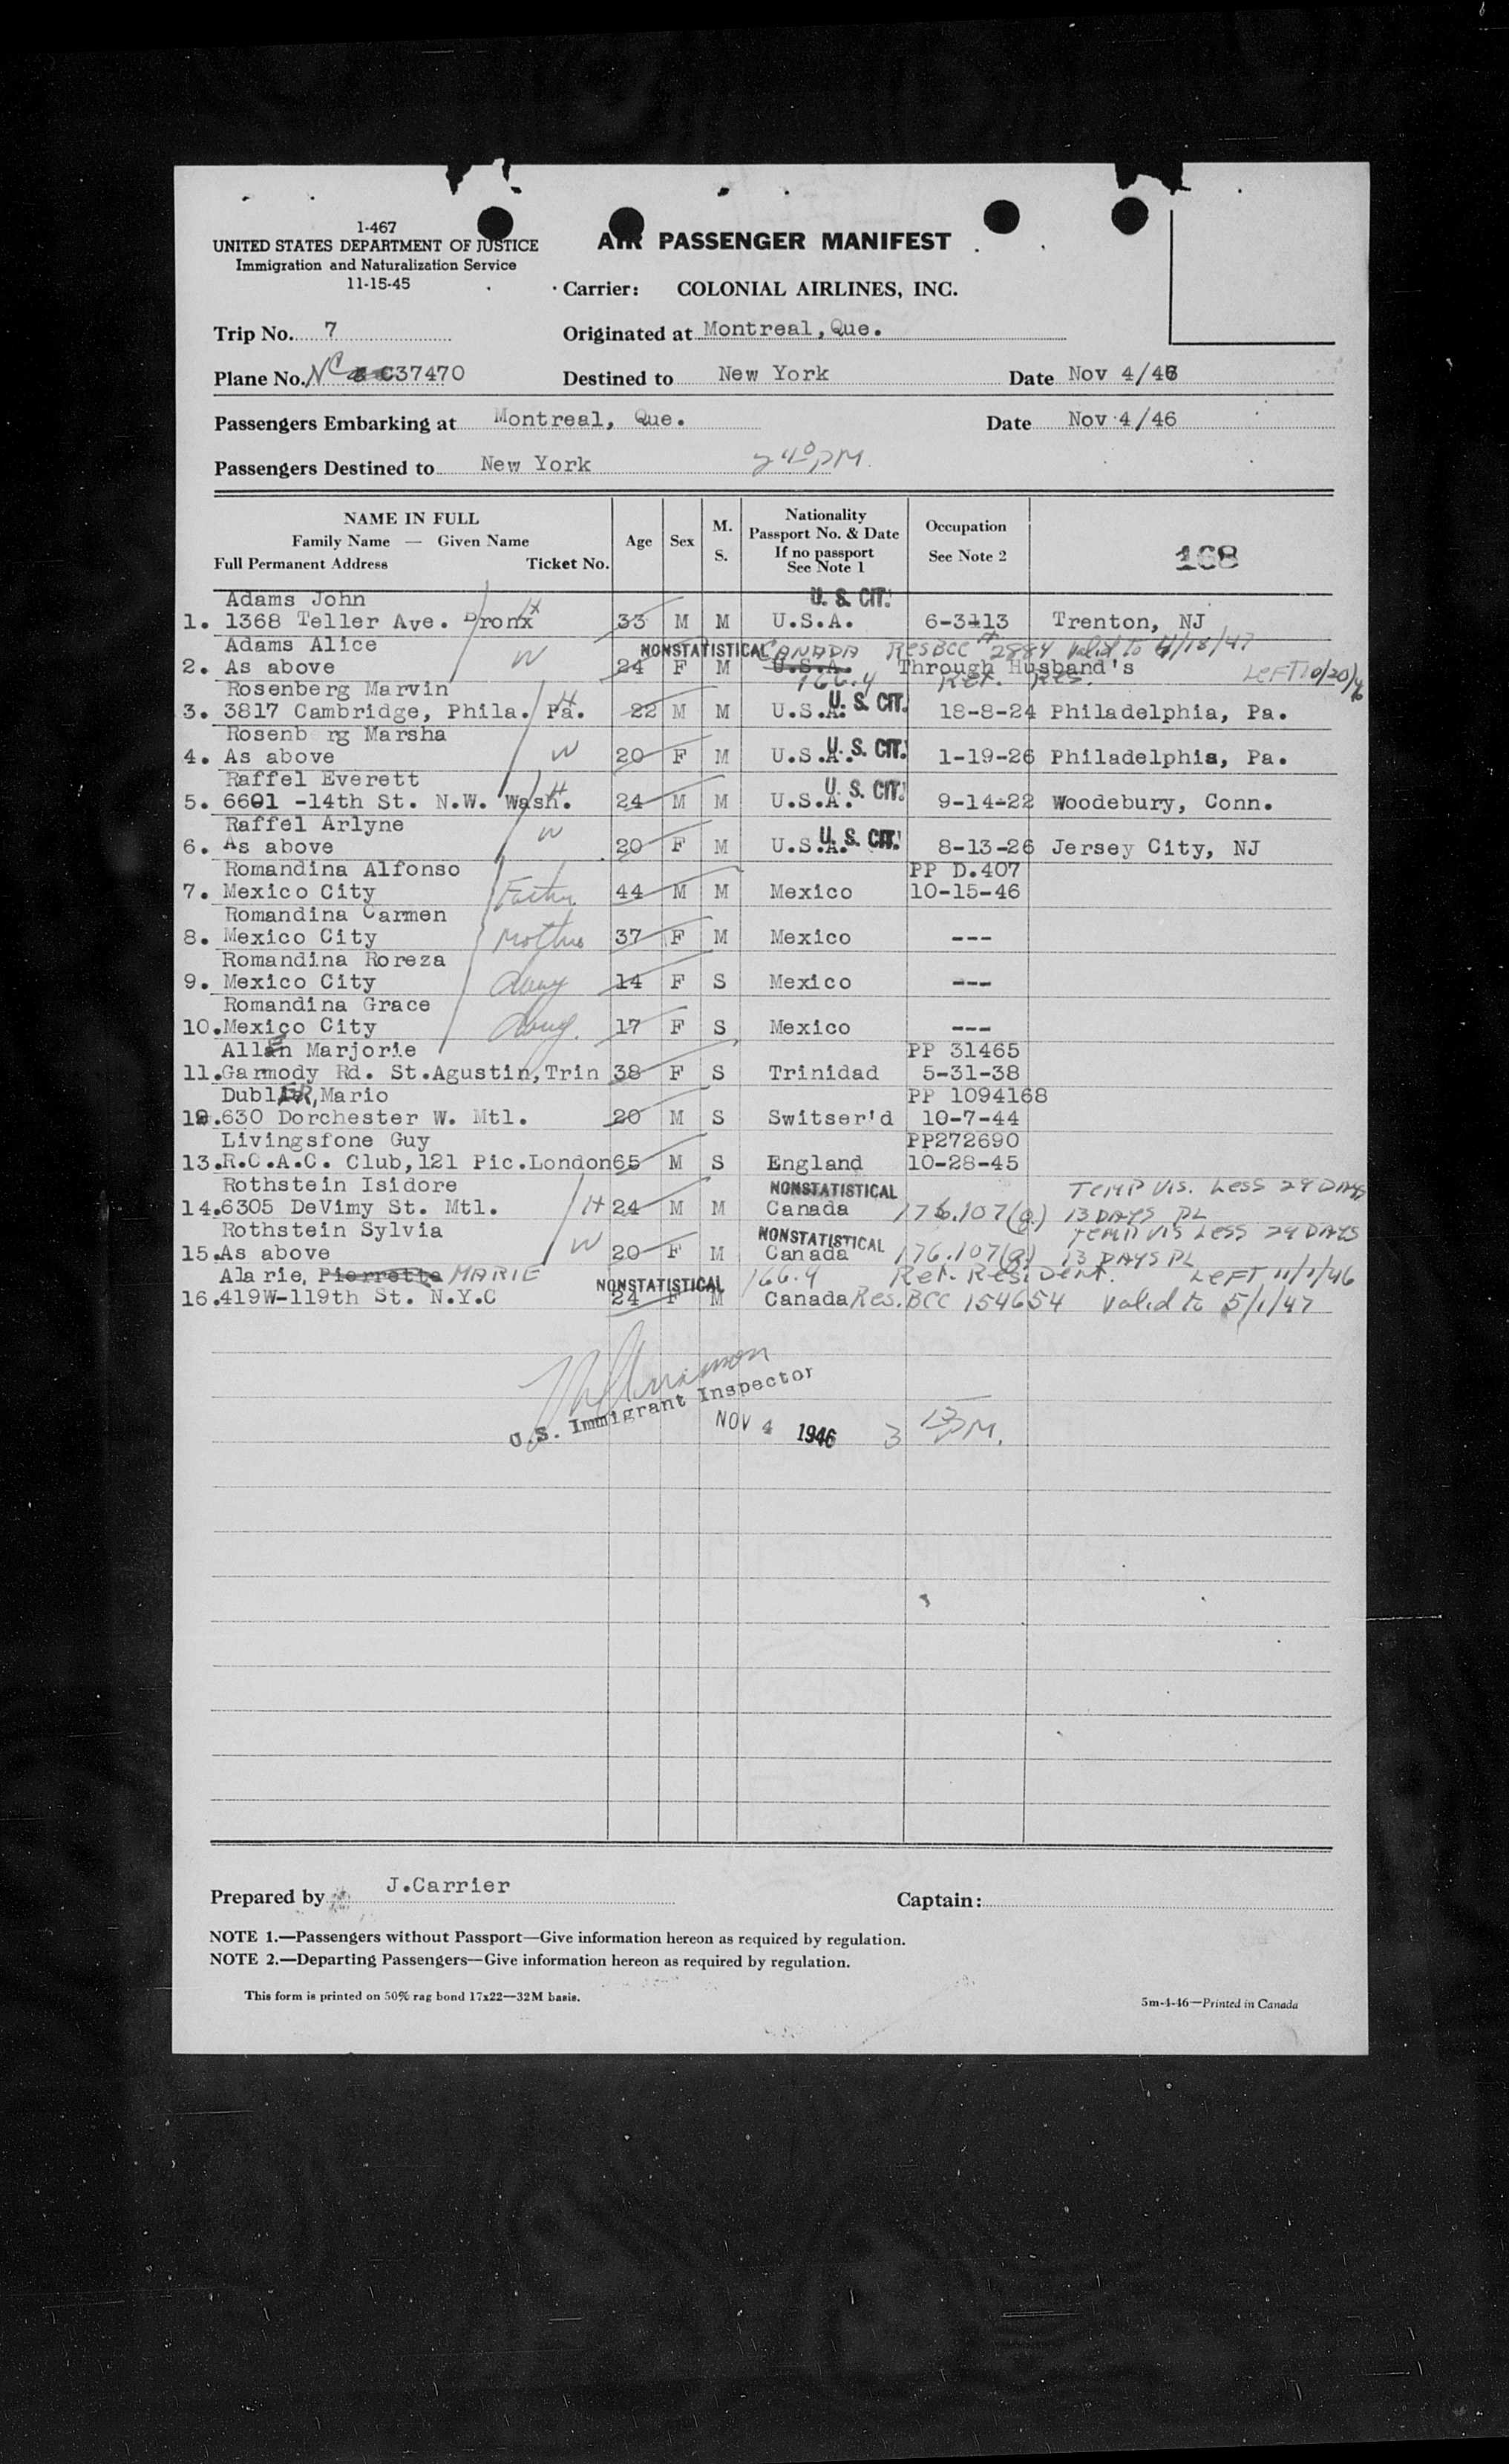 1-467
UNITED STATES DEPARTMENT OF JUSTICE
Immigration and Naturalization Service
11-15-45
AIR PASSENGER MANIFEST
Carrier: COLONIAL AIRLINES, INC.
Trip No. 7
Originated at Montreal, Que.
Plane No. NC 37470
Destined to New York
Date Nov 4/46
Passengers Embarking at Montreal, Que.
Date Nov 4/46
Passengers Destined to New York 2 40 PM.
NAME IN FULL
Family Name — Given Name
Full Permanent Address Ticket No.
Age
Sex
M.
S.
Nationality
Passport No. & Date
If no passport
See Note 1
Occupation
See Note 2
168
Adams John H U. S. CIT.
1. 1368 Teller Ave. Bronx 33 M M U.S.A. 6-3-13 Trenton, NJ
Adams Alice NONSTATISTICAL CANADA Res BCC # 2884 valid to 4/18/47
2. As above W 24 F M U.S.A. Through Husband's
166.4 Ret. Res. LEFT 10/20/46
Rosenberg Marvin H U. S. CIT.
3. 3817 Cambridge, Phila. Pa. 22 M M U.S.A. 18-8-24 Philadelphia, Pa.
Rosenb rg Marsha W U. S. CIT.
4. As above 20 F M U.S.A. 1-19-26 Philadelphia, Pa.
Raffel Everett H U. S. CIT.
5. 6601 -14th St. N.W. Wash. 24 M M U.S.A. 9-14-22 Woodebury, Conn.
Raffel Arlyne W U. S. CIT.
6. As above 20 F M U.S.A. 8-13-26 Jersey City, NJ
Romandina Alfonso PP D.407
7. Mexico City Father 44 M M Mexico 10-15-46
Romandina Carmen
8. Mexico City Mother 37 F M Mexico ---
Romandina Roreza
9. Mexico City Daug 14 F S Mexico ---
Romandina Grace
10. Mexico City Daug. 17 F S Mexico ---
Allen Marjorie PP 31465
11. Garmody Rd. St.Agustin,Trin 38 F S Trinidad 5-31-38
DublER,Mario PP 1094168
12. 630 Dorchester W. Mtl. 20 M S Switser'd 10-7-44
Livingsfone Guy PP272690
13. R.C.A.C. Club,121 Pic.London 65 M S England 10-28-45
Rothstein Isidore NONSTATISTICAL TEMP VIS. Less 29 DAYS
14. 6305 DeVimy St. Mtl. H 24 M M Canada 176.107(g) 13 DAYS PL
Rothstein Sylvia NONSTATISTICAL TEMP VIS Less 29 DAYS
15. As above W 20 F M Canada 176.107(g) 13 DAYS PL
Alarie, Pierrette MARIE NONSTATISTICAL 166.4 Ret. Resident. LEFT 11/1/46
16. 419W-119th St. N.Y.C 24 F M Canada Res. BCC 154654 valid to 5/1/47
U.S. Immigrant Inspector
NOV 4 1946 3 PM.
Prepared by J.Carrier
Captain:
NOTE 1.—Passengers without Passport—Give information hereon as required by regulation.
NOTE 2.—Departing Passengers—Give information hereon as required by regulation.
This form is printed on 50% rag bond 17x22—32M basis.
5m-4-46—Printed in Canada